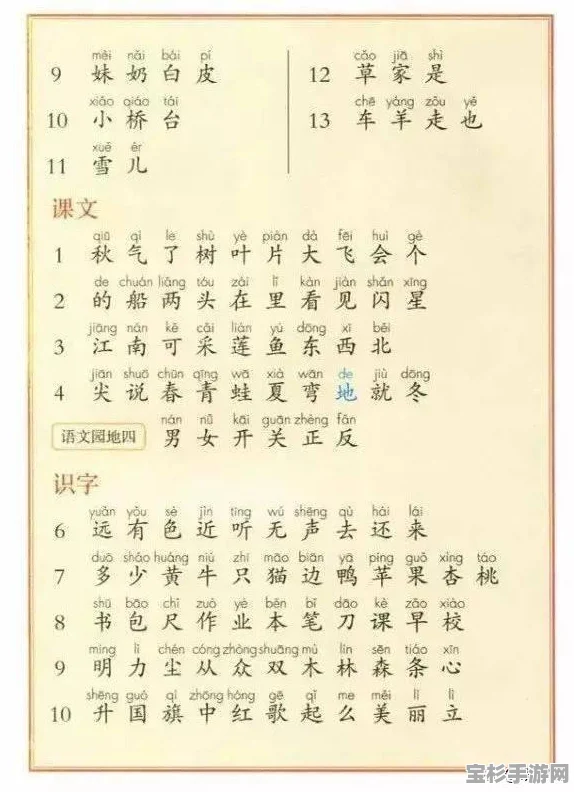 mèi nǎi bái pí
9 妹 奶 白 皮
xiǎo qiáo tái
10 小 桥 台
xuě ér
11 雪 儿
cǎo jiā shì
12 草 家 是
chē yáng zǒu yě
13 车 羊 走 也
课文
qiū qì le shù yè piàn dà fēi huì gè
1 秋 气 了 树 叶 片 大 飞 会 个
de chuán liǎng tóu zài lǐ kàn jiàn shǎn xīng
2 的 船 两 头 在 里 看 见 闪 星
jiāng nán kě cǎi lián yú dōng xī běi
3 江 南 可 采 莲 鱼 东 西 北
jiān shuō chūn qīng wā xià wān de jiù dōng
4 尖 说 春 青 蛙 夏 弯 地 就 冬
nán nǚ kāi guān zhèng fǎn
语文园地四 男 女 开 关 正 反
识字
yuǎn yǒu sè jìn tīng wú shēng qù hái lái
6 远 有 色 近 听 无 声 去 还 来
duō shǎo huáng niú zhī māo biān yā píng guǒ xìng táo
7 多 少 黄 牛 只 猫 边 鸭 苹 果 杏 桃
shū bāo chǐ zuò yè běn bǐ dāo kè zǎo xiào
8 书 包 尺 作 业 本 笔 刀 课 早 校
míng lì chén cóng zhòng shuāng mù lín sēn tiáo xīn
9 明 力 尘 从 众 双 木 林 森 条 心
shēng guó qí zhōng hóng gē qǐ me měi lì lì
10 升 国 旗 中 红 歌 起 么 美 丽 立
宝杉手游网